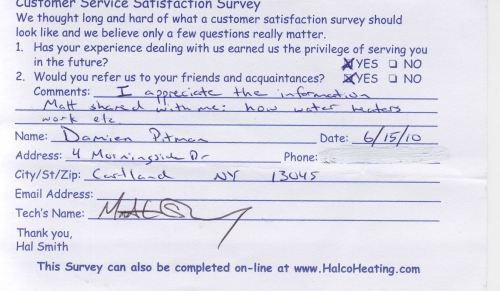 Customer Service Satisfaction Survey
We thought long and hard of what a customer satisfaction survey should
look like and we believe only a few questions really matter.
1. Has your experience dealing with us earned us the privilege of serving you
in the future? YES NO
2. Would you refer us to your friends and acquaintances? YES NO
Comments: I appreciate the information
Matt shared with me: how water heaters
work etc
Name: Damien Pitman Date: 6/15/10
Address: 4 Morningside Dr Phone:
City/St/Zip: Cortland NY 13045
Email Address:
Tech's Name:
Thank you,
Hal Smith
This Survey can also be completed on-line at www.HalcoHeating.com